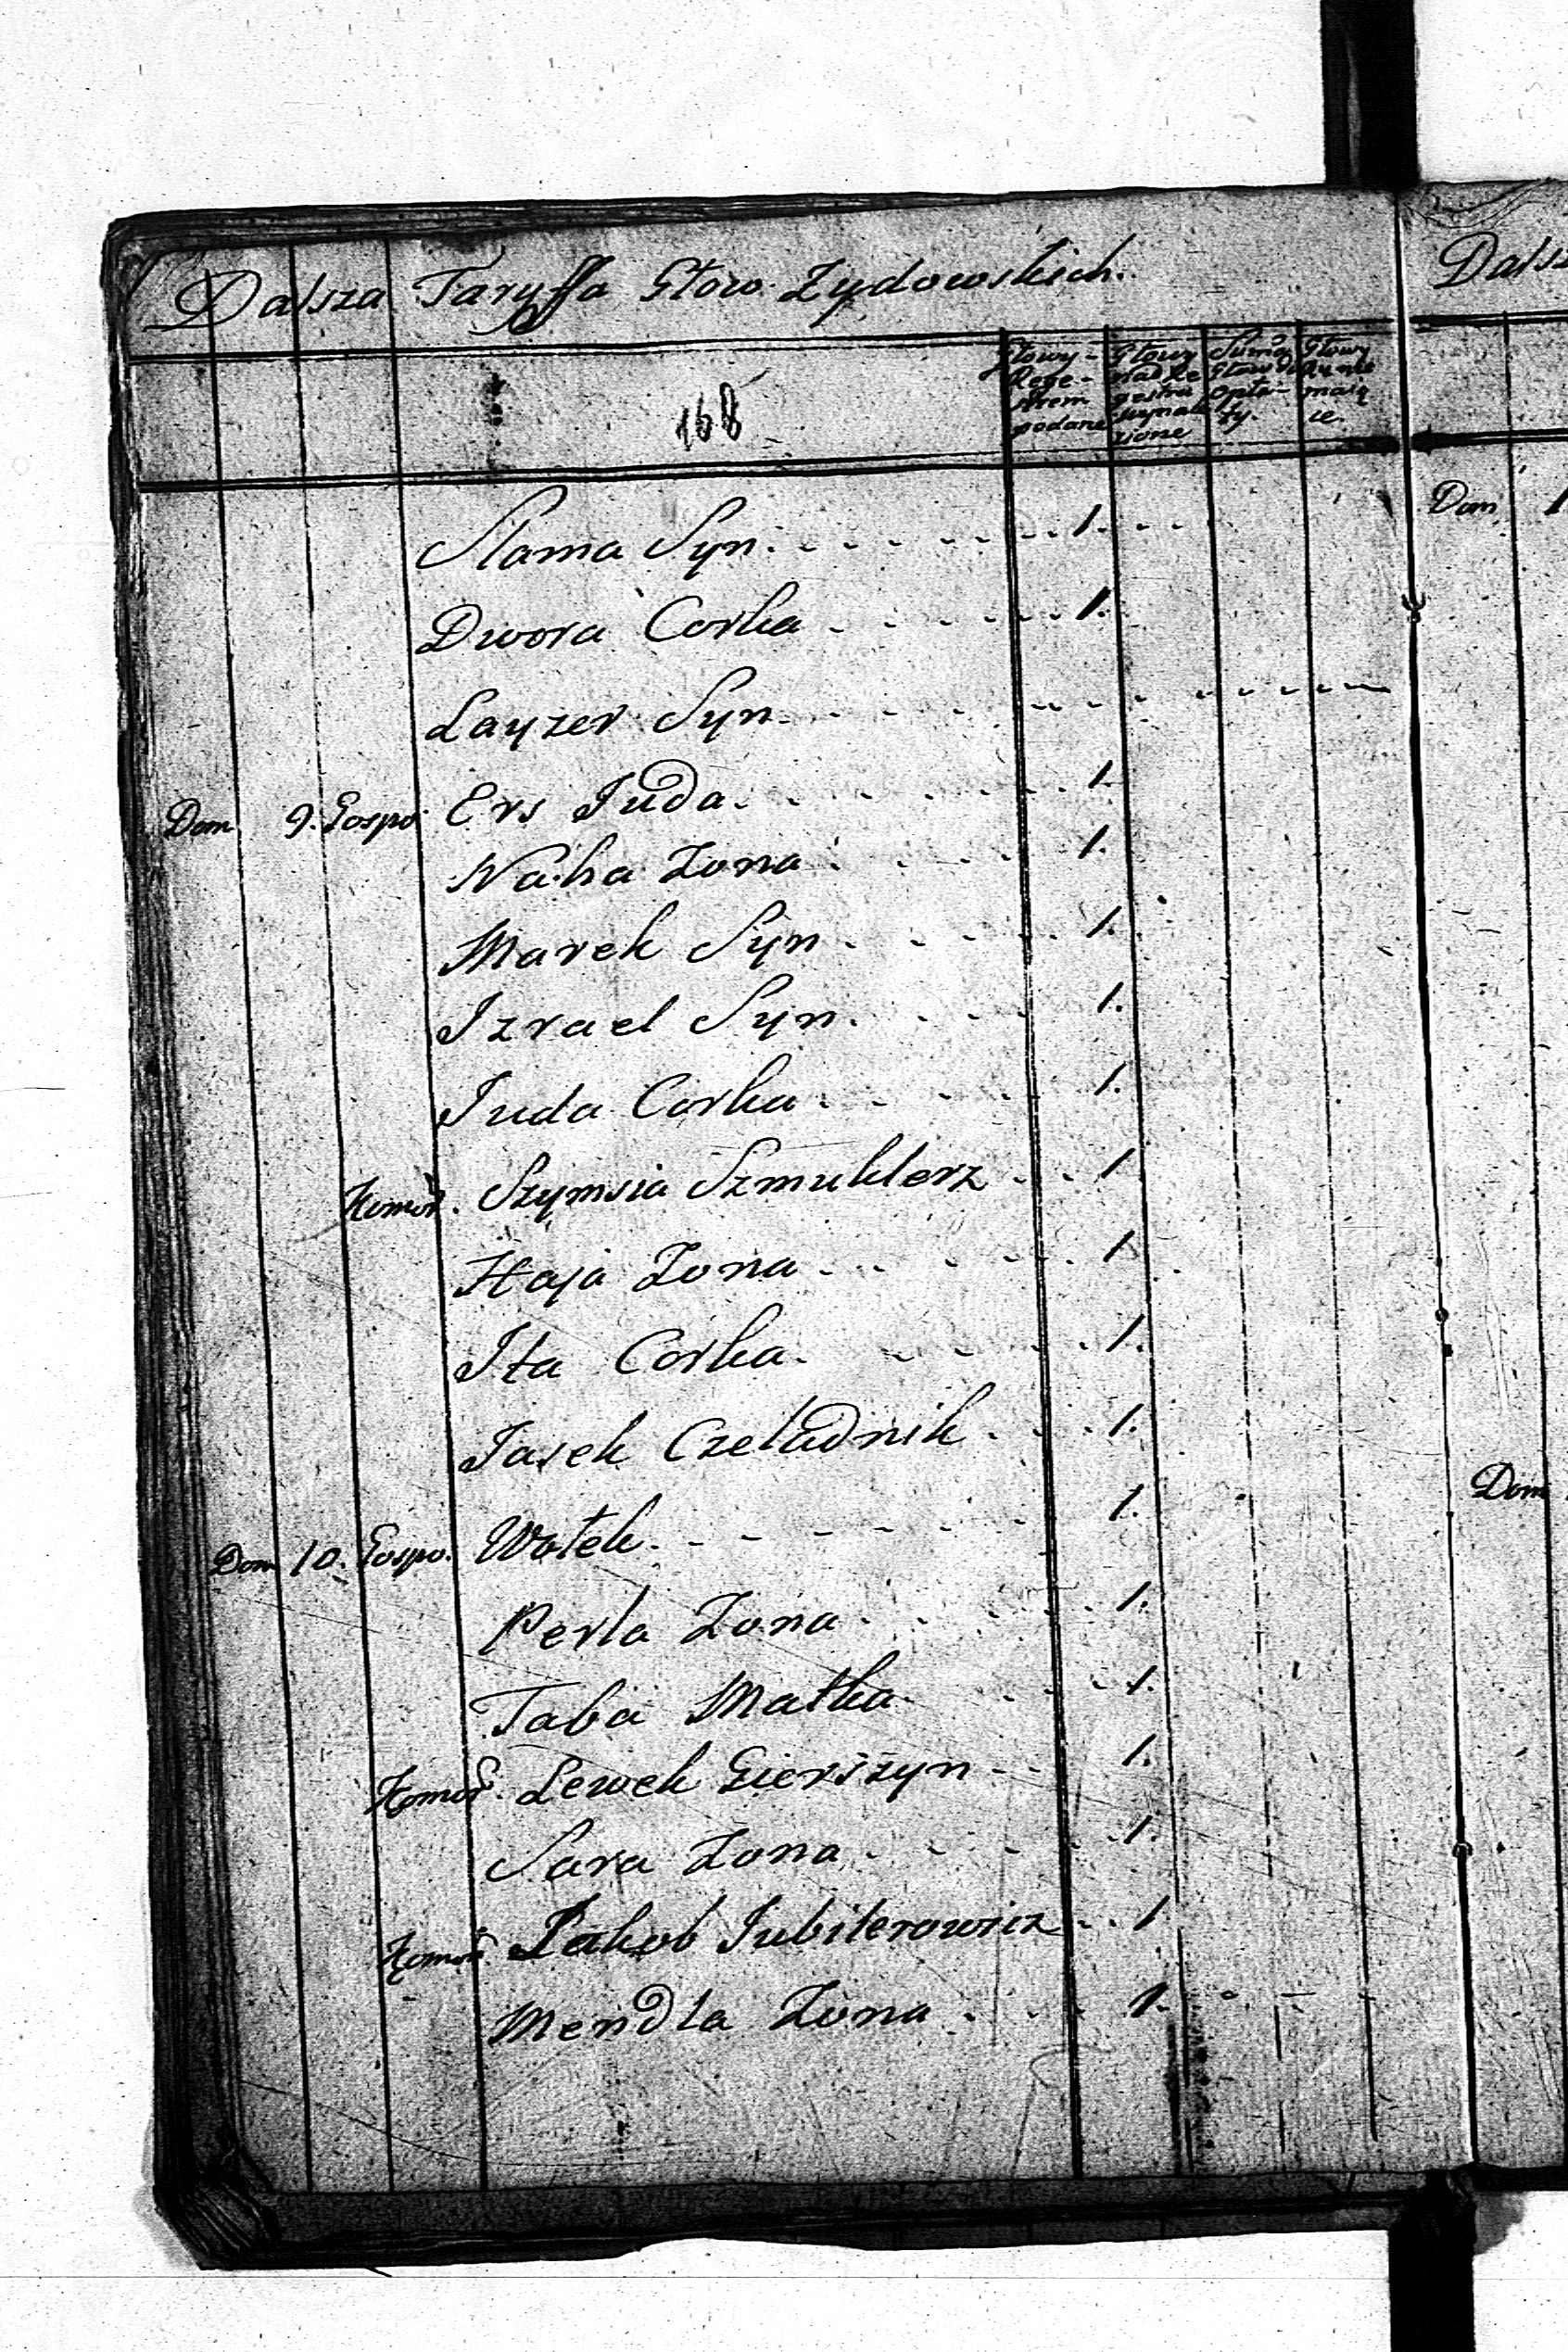 Dalsza Taryffa Głow Zydowskich.
168
Głowy Rege- strem podane
Głowy nad Re gestra wynale zione
Suma Głow do opła- ty.
Głowy maią ce.
Slama Syn. 1.
Dwora Corka 1.
Layzer Syn
Dom 9. Gospo. Ers Juda. 1.
Naha Zona 1.
Marek Syn 1.
Izrael Syn. 1.
Juda Corka 1.
Komor. Szymsia Szmuklerz 1.
Haja Zona 1.
Ita Corka. 1.
Jasek Czeladnik 1.
Dom 10. Gospo. Wolek 1.
Perla Zona 1.
Taba Matka 1.
Komor. Lewek Gierszyn 1.
Sara Zona 1.
Komor. Jakob Jubilerowicz 1
Mendla Zona 1.
Dalsz
Dom 1
Dom